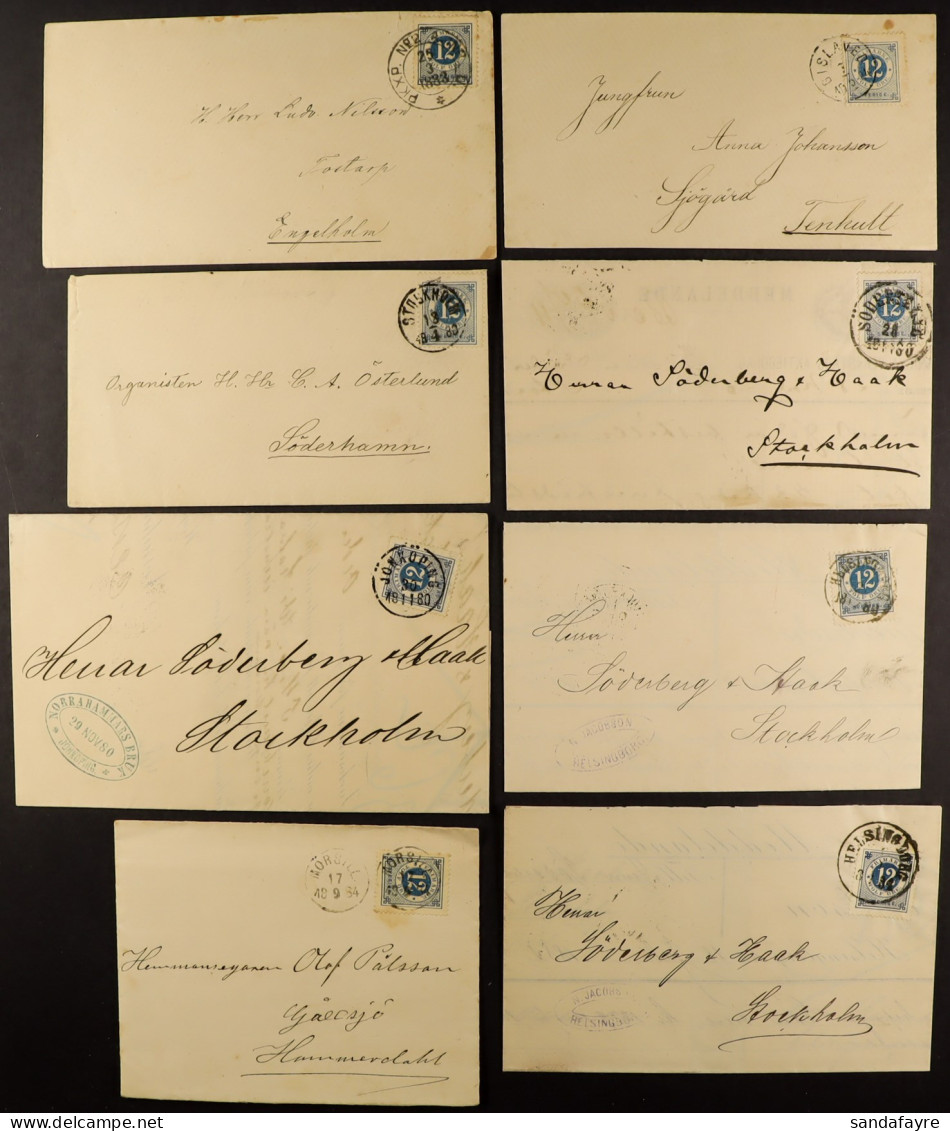 PKXP. No 2
25
3
1883
12
H. Herr Ludv. Nilsson
Tostarp
Engelholm
GISLAVED
12
Jungfrun
Anna Johansson
Sjögård
Tenhult
STOCKHOLM
13
4
12
Organisten H. Hr C. A. Österlund
Söderhamn.
SÖDERTELJE
24
12
Herrar Söderberg & Haak
Stockholm
JÖNKÖPING
30
18 11 80
12
Herrar Söderberg & Haak
Stockholm
NORRAHAMMARS BRUK
29 NOV 80
HELSINGBORG
12
Herrr
Söderberg & Haak
Stockholm
N. JACOBSON
HELSINGBORG
MÖRSIL
17
18 9 84
MÖRSIL
12
Hemmansegaren Olof Pålsson
Gåxsjö
Hammerdahl
HELSINGBORG
12
Herrar
Söderberg & Haak
Stockholm
N. JACOBSON
HELSINGBORG
sandafayre